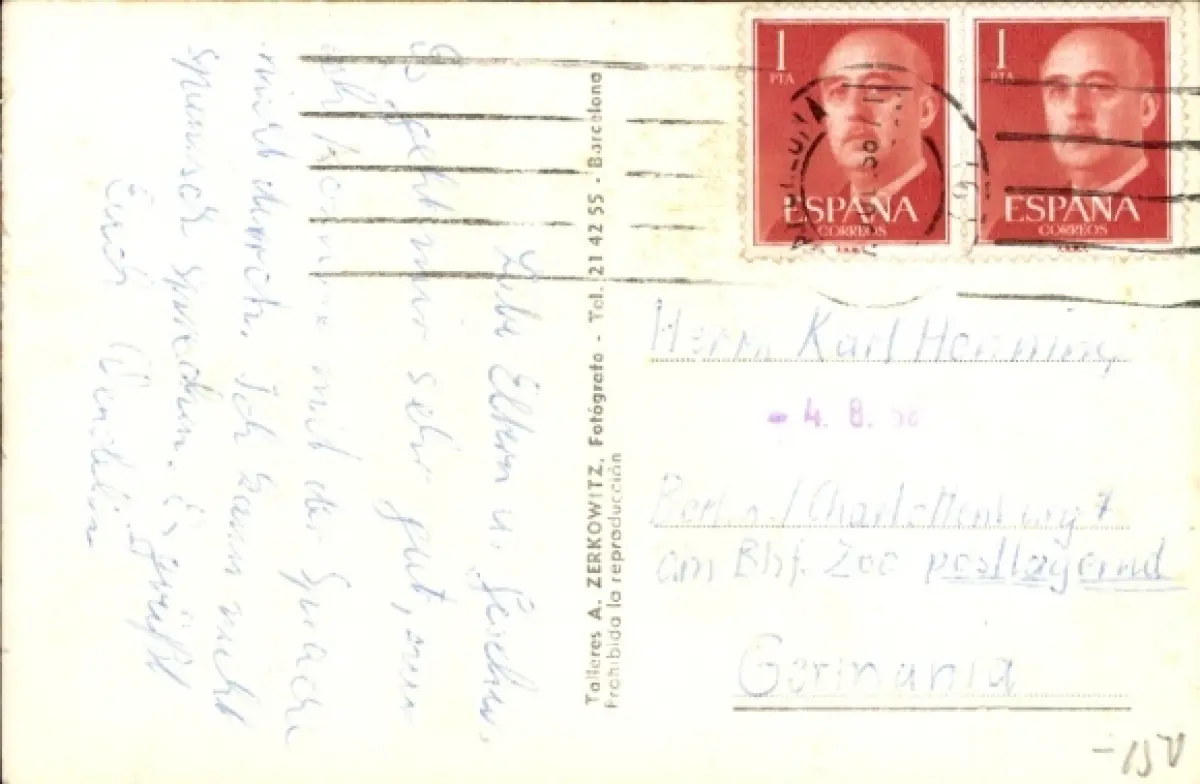 Liebe Eltern u. Geschw.,
Es geht mir sehr gut, nur
ich komme mit der Sprache
nicht durch. Ich kann nicht
spanisch sprechen. Es grüßt
Euch Wendelin
Talleres A. ZERKOWITZ, Fotógrafo - Tel. 21 42 55 - Barcelona
Prohibida la reproducción
1 PTA
ESPAÑA
CORREOS
1 PTA
ESPAÑA
CORREOS
Herrn Karl Henning
- 4. 8. 56
Berlin / Charlottenburg
am Bhf. Zoo postlagernd
Germania